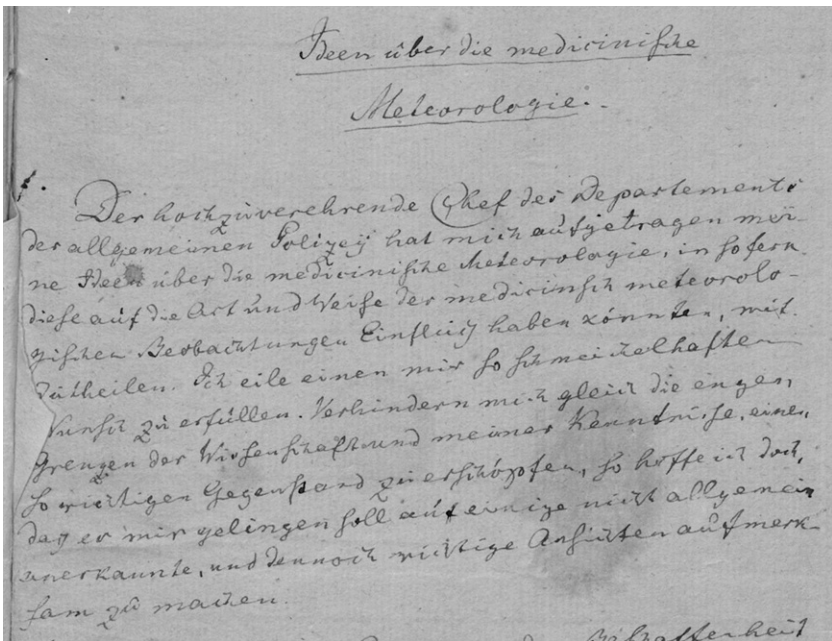 Ideen über die medicinische
Meteorologie.
1.
Der hochzuverehrende Chef des Departements
der allgemeinen Polizeÿ hat mich aufgetragen mei-
ne Ideen über die medicinische Meteorologie, in sofern
diese auf die Art und Weise der medicinisch meteorolo-
gischen Beobachtungen Einfluß haben könnten, mit
zutheilen. Ich eile einen mir so schmeichelhaften
Wunsch zu erfüllen. Verhindern mich gleich die engen
Grenzen der Wissenschaft und meiner Kenntnisse, einen
so wichtigen Gegenstand zu erschöpfen, so hoffe ich doch,
daß es mir gelingen soll auf einige nicht allgemein
anerkannte, und dennoch wichtige Ansichten aufmerk-
sam zu machen.
Beschaffenheit